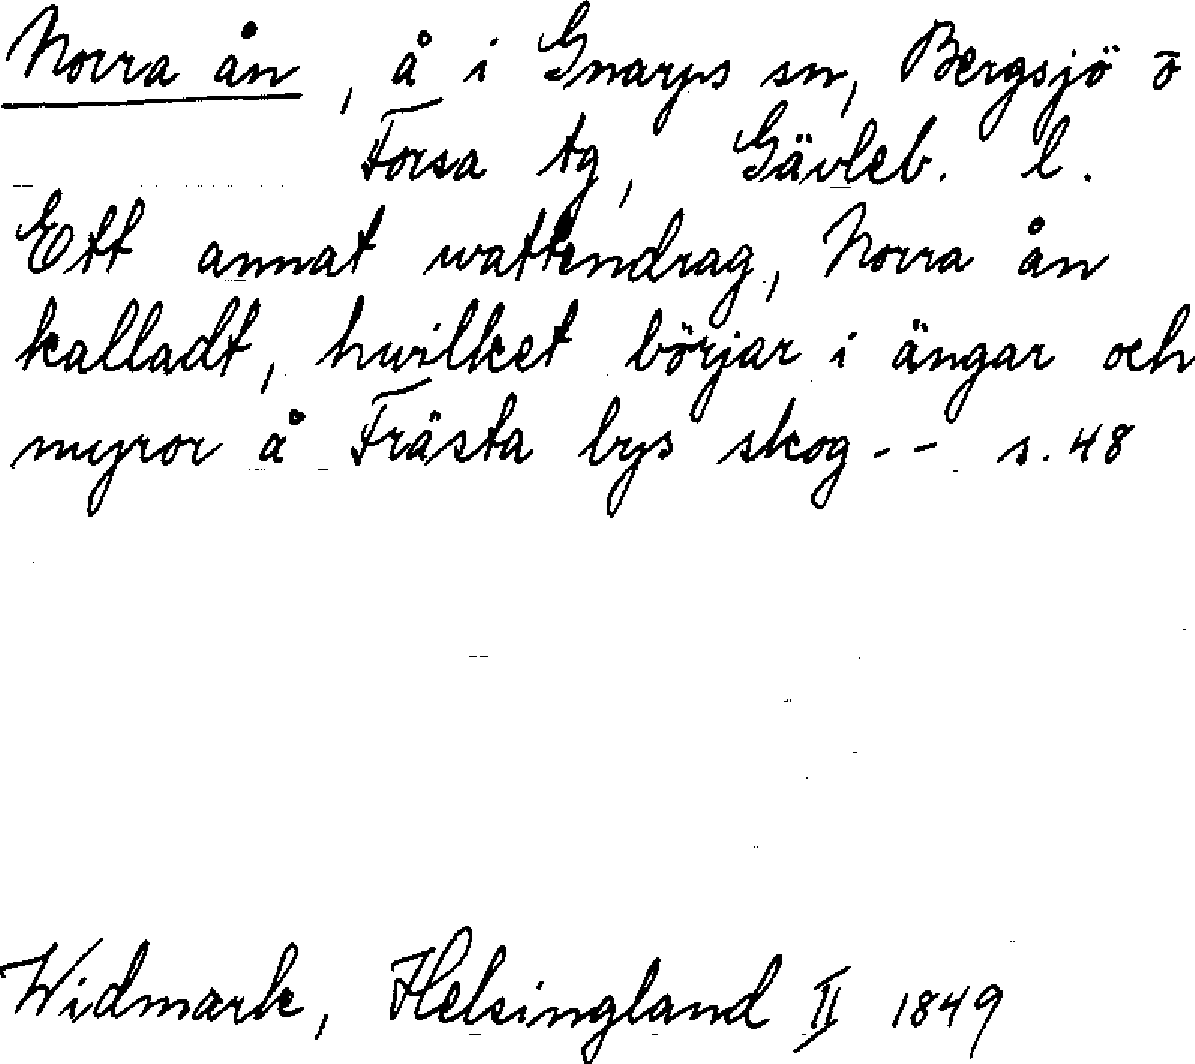 Norra ån, å i Gnarps sn, Bergsjö o
Forsa tg, Gävleb. l.
Ett annat wattendrag, Norra ån
kalladt, hwilket börjar i ängar och
myror å Frästa bys skog - - s. 48
Widmark, Helsingland II 1849